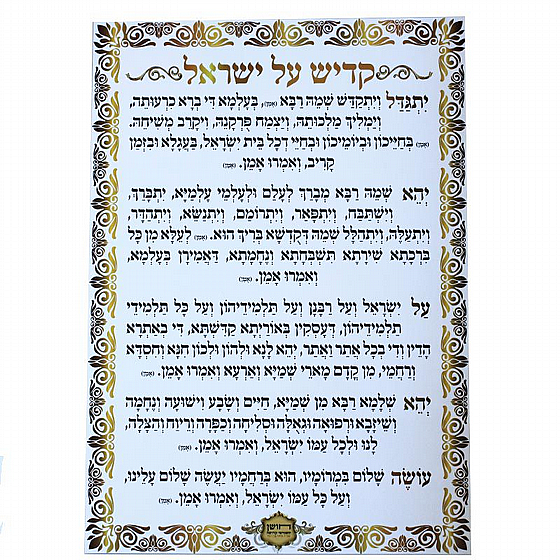 קדיש על ישראל
יִתְגַּדַּל וְיִתְקַדַּשׁ שְׁמֵהּ רַבָּא (אָמֵן), בְּעָלְמָא דִּי בְרָא כִרְעוּתֵהּ,
וְיַמְלִיךְ מַלְכוּתֵהּ, וְיַצְמַח פֻּרְקָנֵהּ, וִיקָרֵב מְשִׁיחֵהּ.
(אָמֵן) בְּחַיֵּיכוֹן וּבְיוֹמֵיכוֹן וּבְחַיֵּי דְכָל בֵּית יִשְׂרָאֵל, בַּעֲגָלָא וּבִזְמַן
קָרִיב, וְאִמְרוּ אָמֵן. (אָמֵן)
יְהֵא שְׁמֵהּ רַבָּא מְבָרַךְ לְעָלַם וּלְעָלְמֵי עָלְמַיָּא, יִתְבָּרַךְ,
וְיִשְׁתַּבַּח, וְיִתְפָּאַר, וְיִתְרוֹמַם, וְיִתְנַשֵּׂא, וְיִתְהַדָּר,
וְיִתְעַלֶּה, וְיִתְהַלָּל שְׁמֵהּ דְּקֻדְשָׁא בְּרִיךְ הוּא. (אָמֵן) לְעֵלָּא מִן כָּל
בִּרְכָתָא שִׁירָתָא תִּשְׁבְּחָתָא וְנֶחָמָתָא, דַּאֲמִירָן בְּעָלְמָא,
וְאִמְרוּ אָמֵן. (אָמֵן)
עַל יִשְׂרָאֵל וְעַל רַבָּנָן וְעַל תַּלְמִידֵיהוֹן וְעַל כָּל תַּלְמִידֵי
תַלְמִידֵיהוֹן, דְּעָסְקִין בְּאוֹרַיְתָא קַדִּשְׁתָּא, דִּי בְאַתְרָא
הָדֵין וְדִי בְכָל אֲתַר וַאֲתַר, יְהֵא לָנָא וּלְהוֹן וּלְכוֹן חִנָּא וְחִסְדָּא
וְרַחֲמֵי, מִן קֳדָם מָארֵי שְׁמַיָּא וְאַרְעָא וְאִמְרוּ אָמֵן. (אָמֵן)
יְהֵא שְׁלָמָא רַבָּא מִן שְׁמַיָּא, חַיִּים וְשָׂבָע וִישׁוּעָה וְנֶחָמָה
וְשֵׁיזָבָא וּרְפוּאָה וּגְאֻלָּה וּסְלִיחָה וְכַפָּרָה וְרֵיוַח וְהַצָּלָה,
לָנוּ וּלְכָל עַמּוֹ יִשְׂרָאֵל, וְאִמְרוּ אָמֵן. (אָמֵן)
עוֹשֶׂה שָׁלוֹם בִּמְרוֹמָיו, הוּא בְּרַחֲמָיו יַעֲשֶׂה שָׁלוֹם עָלֵינוּ,
וְעַל כָּל עַמּוֹ יִשְׂרָאֵל, וְאִמְרוּ אָמֵן. (אָמֵן)